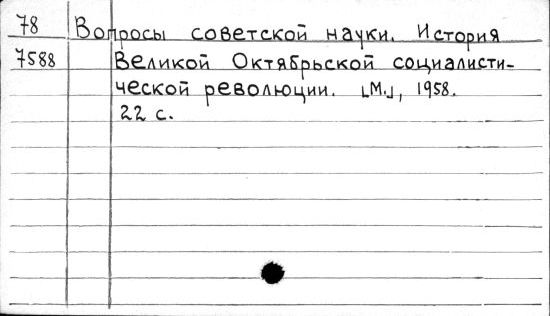 78 Вопросы советской науки. История
7588 Великой Октябрьской социалисти-
ческой революции. [М.], 1958.
22 с.